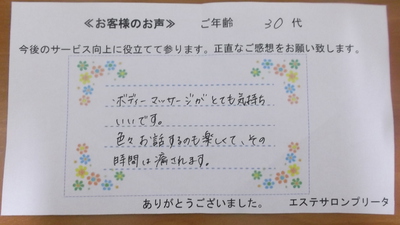 ≪お客様のお声≫　ご年齢　30 代
今後のサービス向上に役立てて参ります。正直なご感想をお願い致します。
ボディーマッサージがとても気持ち
いいです。
色々お話するのも楽しくて、その
時間は癒されます。
ありがとうございました。　エステサロンブリータ